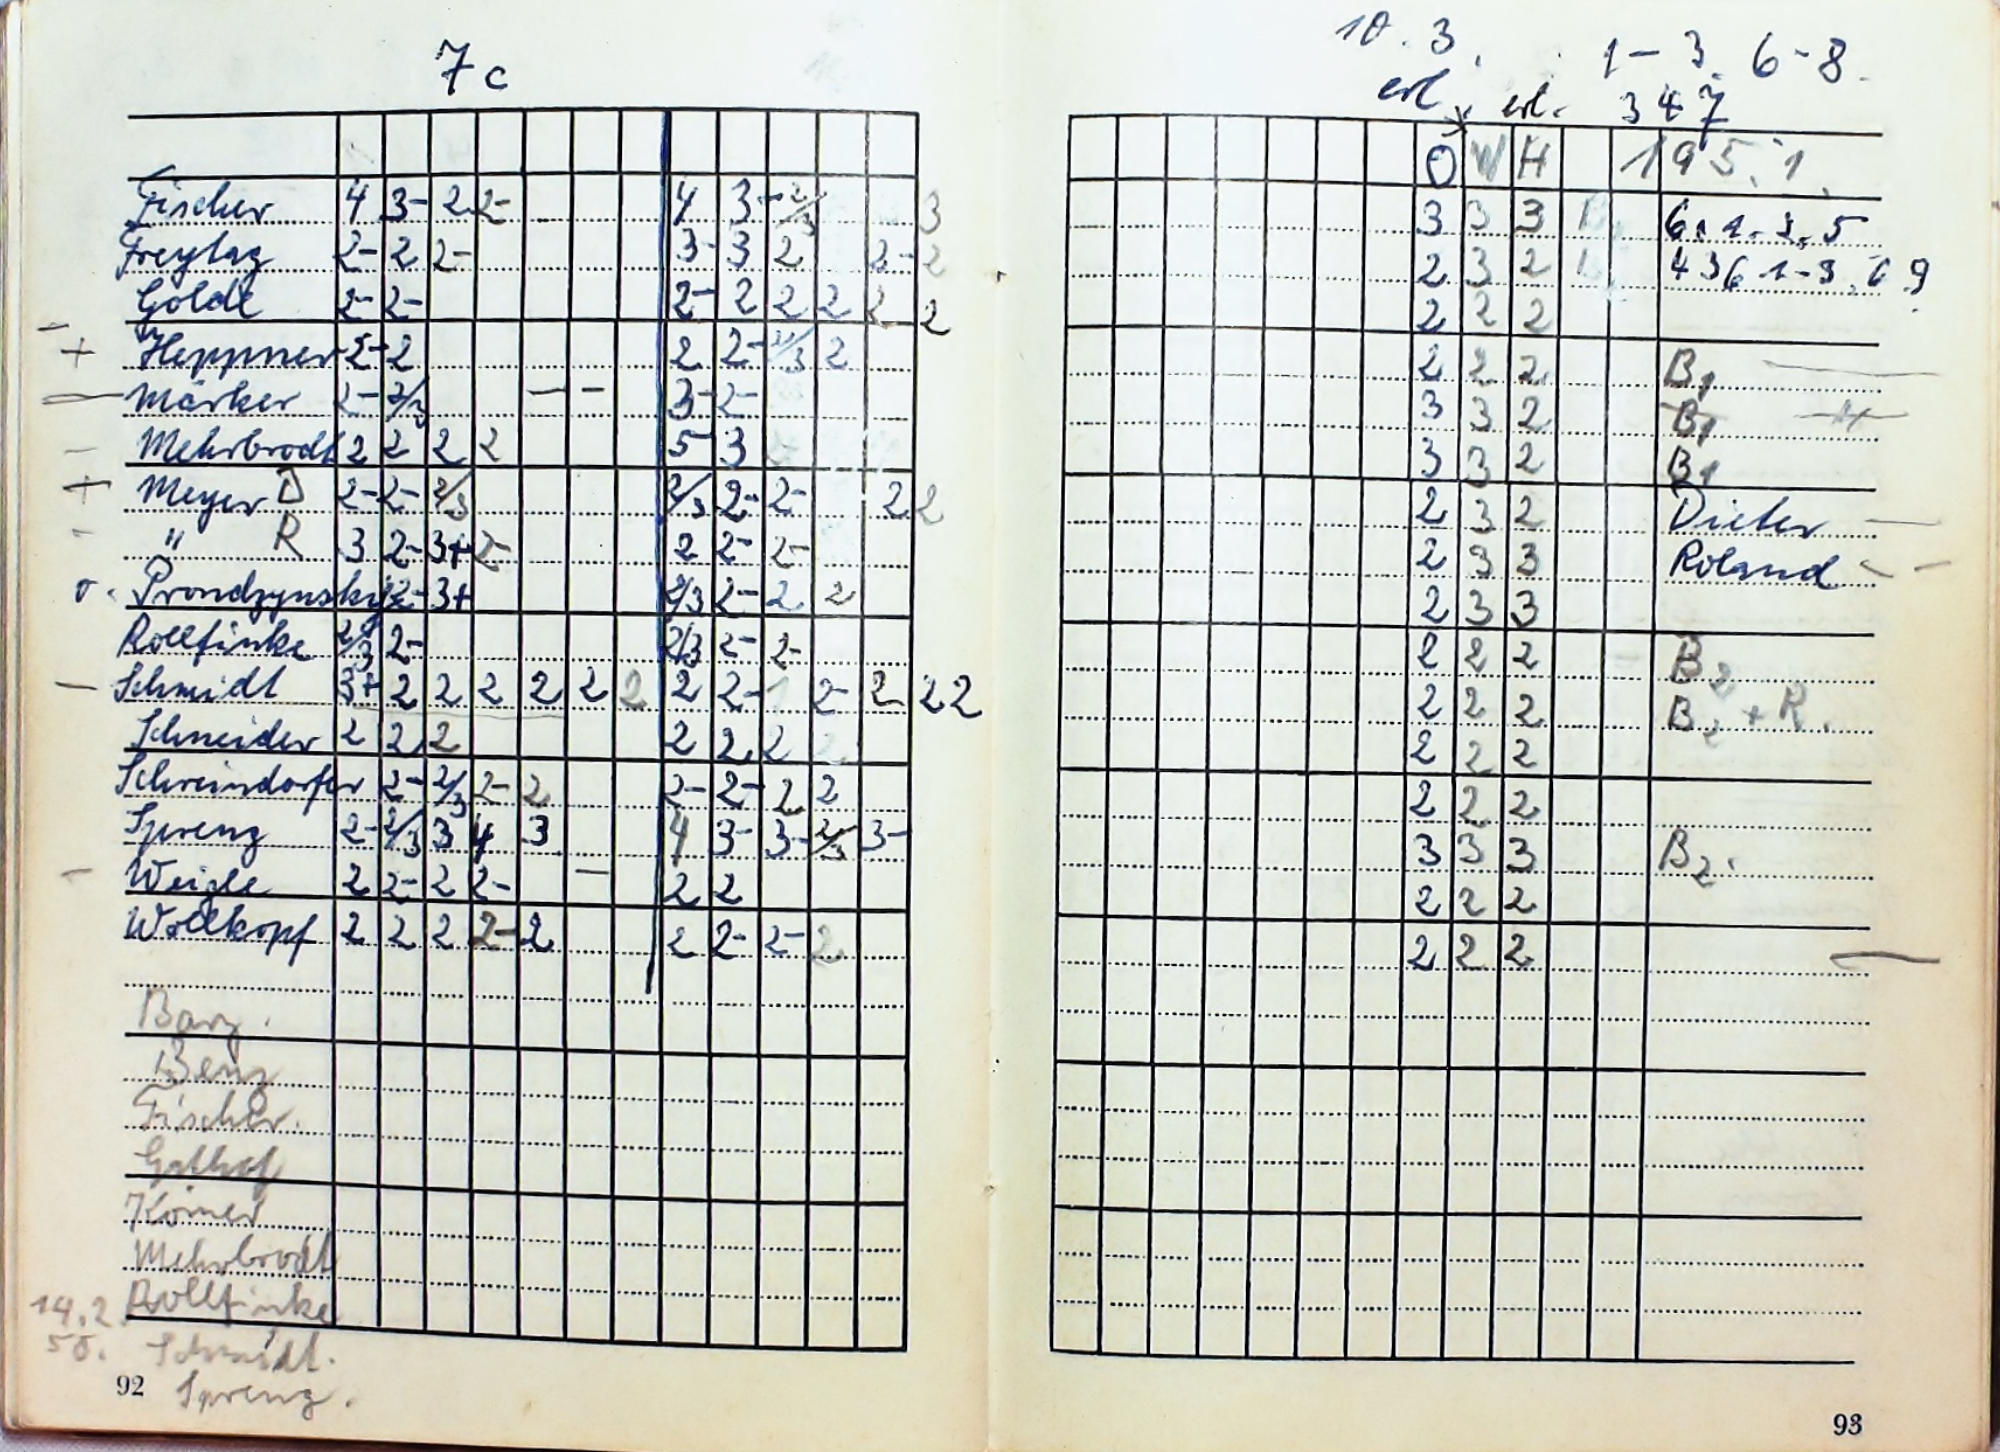 7c
Fischer 4 3- 2 2- 4 3- 2/3 3
Freytag 2- 2 2- 3- 3 2 2- 2
Golde 2- 2- 2- 2 2 2 2 2
- + Heppner 2- 2 2 2- 2/3 2
Märker 2- 2/3 — - 3- 2-
- Mehrbrodt 2 2 2 2 5 3
+ Meyer D 2- 2- 2/3 2/3 2- 2- 2 2
- " R 3 2- 3+ 2- 2 2- 2-
o. Prondzynsky 2- 3+ 2/3 2- 2 2
Rollfinke 2/3 2- 2/3 2- 2-
— Schmidt 3+ 2 2 2 2 2 2 2 2- 1 2- 2 2 2
Schneider 2 2 2 2 2 2 2
Schreindorfer 2- 2/3 2- 2 2- 2- 2 2
Sprenz 2- 2/3 3 4 3 4 3- 3- 2/3 3-
- Weigle 2 2- 2 2- — 2 2
Wollkopf 2 2 2 2- 2 2 2- 2- 2
Barz.
Benz
Fischer.
Gathof
Körner
Mehrbrodt
14.2. Rollfinke
55. Schmidt.
92 Sprenz.
10.3. 1-3 6-8.
erl. erl. 3 4 7
O W H 195.1.
3 3 3 B 6. 1. 2. 5
2 3 2 4 3 6 1-3. 6 9
2 2 2
2 2 2 B1
3 3 2 B1
3 3 2 B1
2 3 2 Dieter —
2 3 3 Roland - -
2 3 3
2 2 2 B2
2 2 2 B2 + R.
2 2 2
2 2 2
3 3 3 B2.
2 2 2
2 2 2 —
93